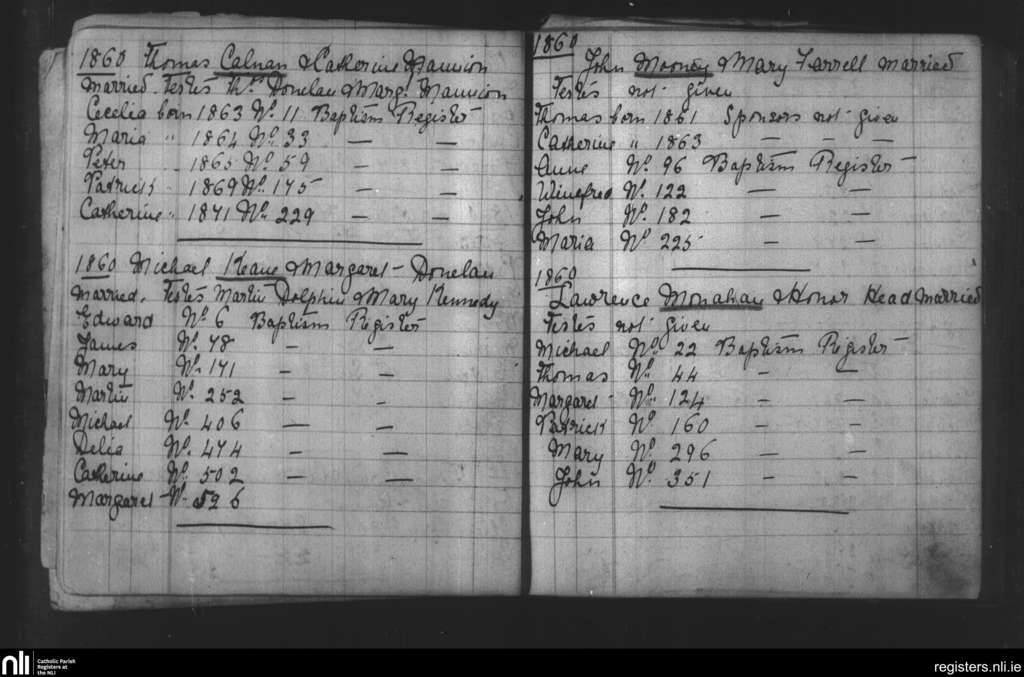 1860 Thomas Calnan & Catherine Mannion
married. Testes Ths. Donelan & Marg. Mannion
Cecelia born 1863 No. 11 Baptism Register
Maria " 1864 No. 33 — —
Peter " 1865 No. 59 — —
Patrick " 1869 No. 175 — —
Catherine " 1871 No. 229 — —
1860 Michael Keane & Margaret Donelan
married. Testes Martin Dolphin & Mary Kennedy
Edward No. 6 Baptism Register
James No. 78 — —
Mary No. 171 — —
Martin No. 252 — —
Michael No. 406 — —
Delia No. 474 — —
Catherine No. 502 — —
Margaret No. 526
1860
John Mooney & Mary Farrell married
Testes not given
Thomas born 1861 Sponsors not given
Catherine " 1863 — — —
Anne No. 96 Baptism Register
Winefred No. 122 — —
John No. 182 — —
Maria No. 225 — —
1860
Lawrence Monahan & Honor Head married
Testes not given
Michael No. 22 Baptism Register
Thomas No. 44 — —
Margaret No. 124 — —
Patrick No. 160 — —
Mary No. 296 — —
John No. 351 — —
nli Catholic Parish
Registers at
the NLI
registers.nli.ie